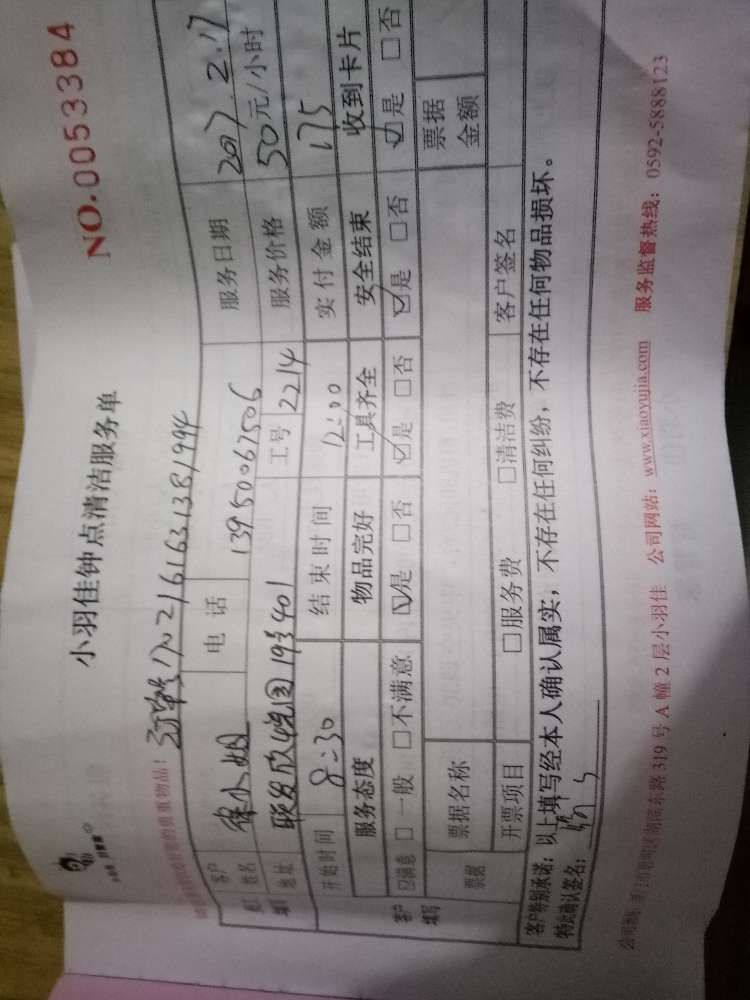 NO.0053384
小羽佳钟点清洁服务单
订单号1702161631381994
客户 姓名 徐小姐 电话 13950067506 服务日期 2017.2.17
地址 联发欣悦园19号401 工号 2214 服务价格 50元/小时
开始时间 8:30 结束时间 12:00 实付金额 175
客户填写 服务态度 物品完好 工具齐全 安全结束 收到卡片
☑满意 □一般 □不满意 ☑是 □否 ☑是 □否 ☑是 □否 ☑是 □否
票据 票据名称 票据金额
开票项目 □服务费 □清洁费 客户签名
客户特别承诺：以上填写经本人确认属实，不存在任何纠纷，不存在任何物品损坏。
特此确认签名：
公司地址：厦门市思明区湖滨东路319号A幢2层小羽佳 公司网站：www.xiaoyujia.com 服务监督热线：0592-5888123